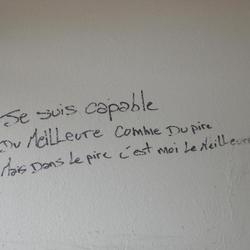 Je suis capable
Du Meilleure comme Du pire
Mais Dans le pire c'est moi le Meilleure